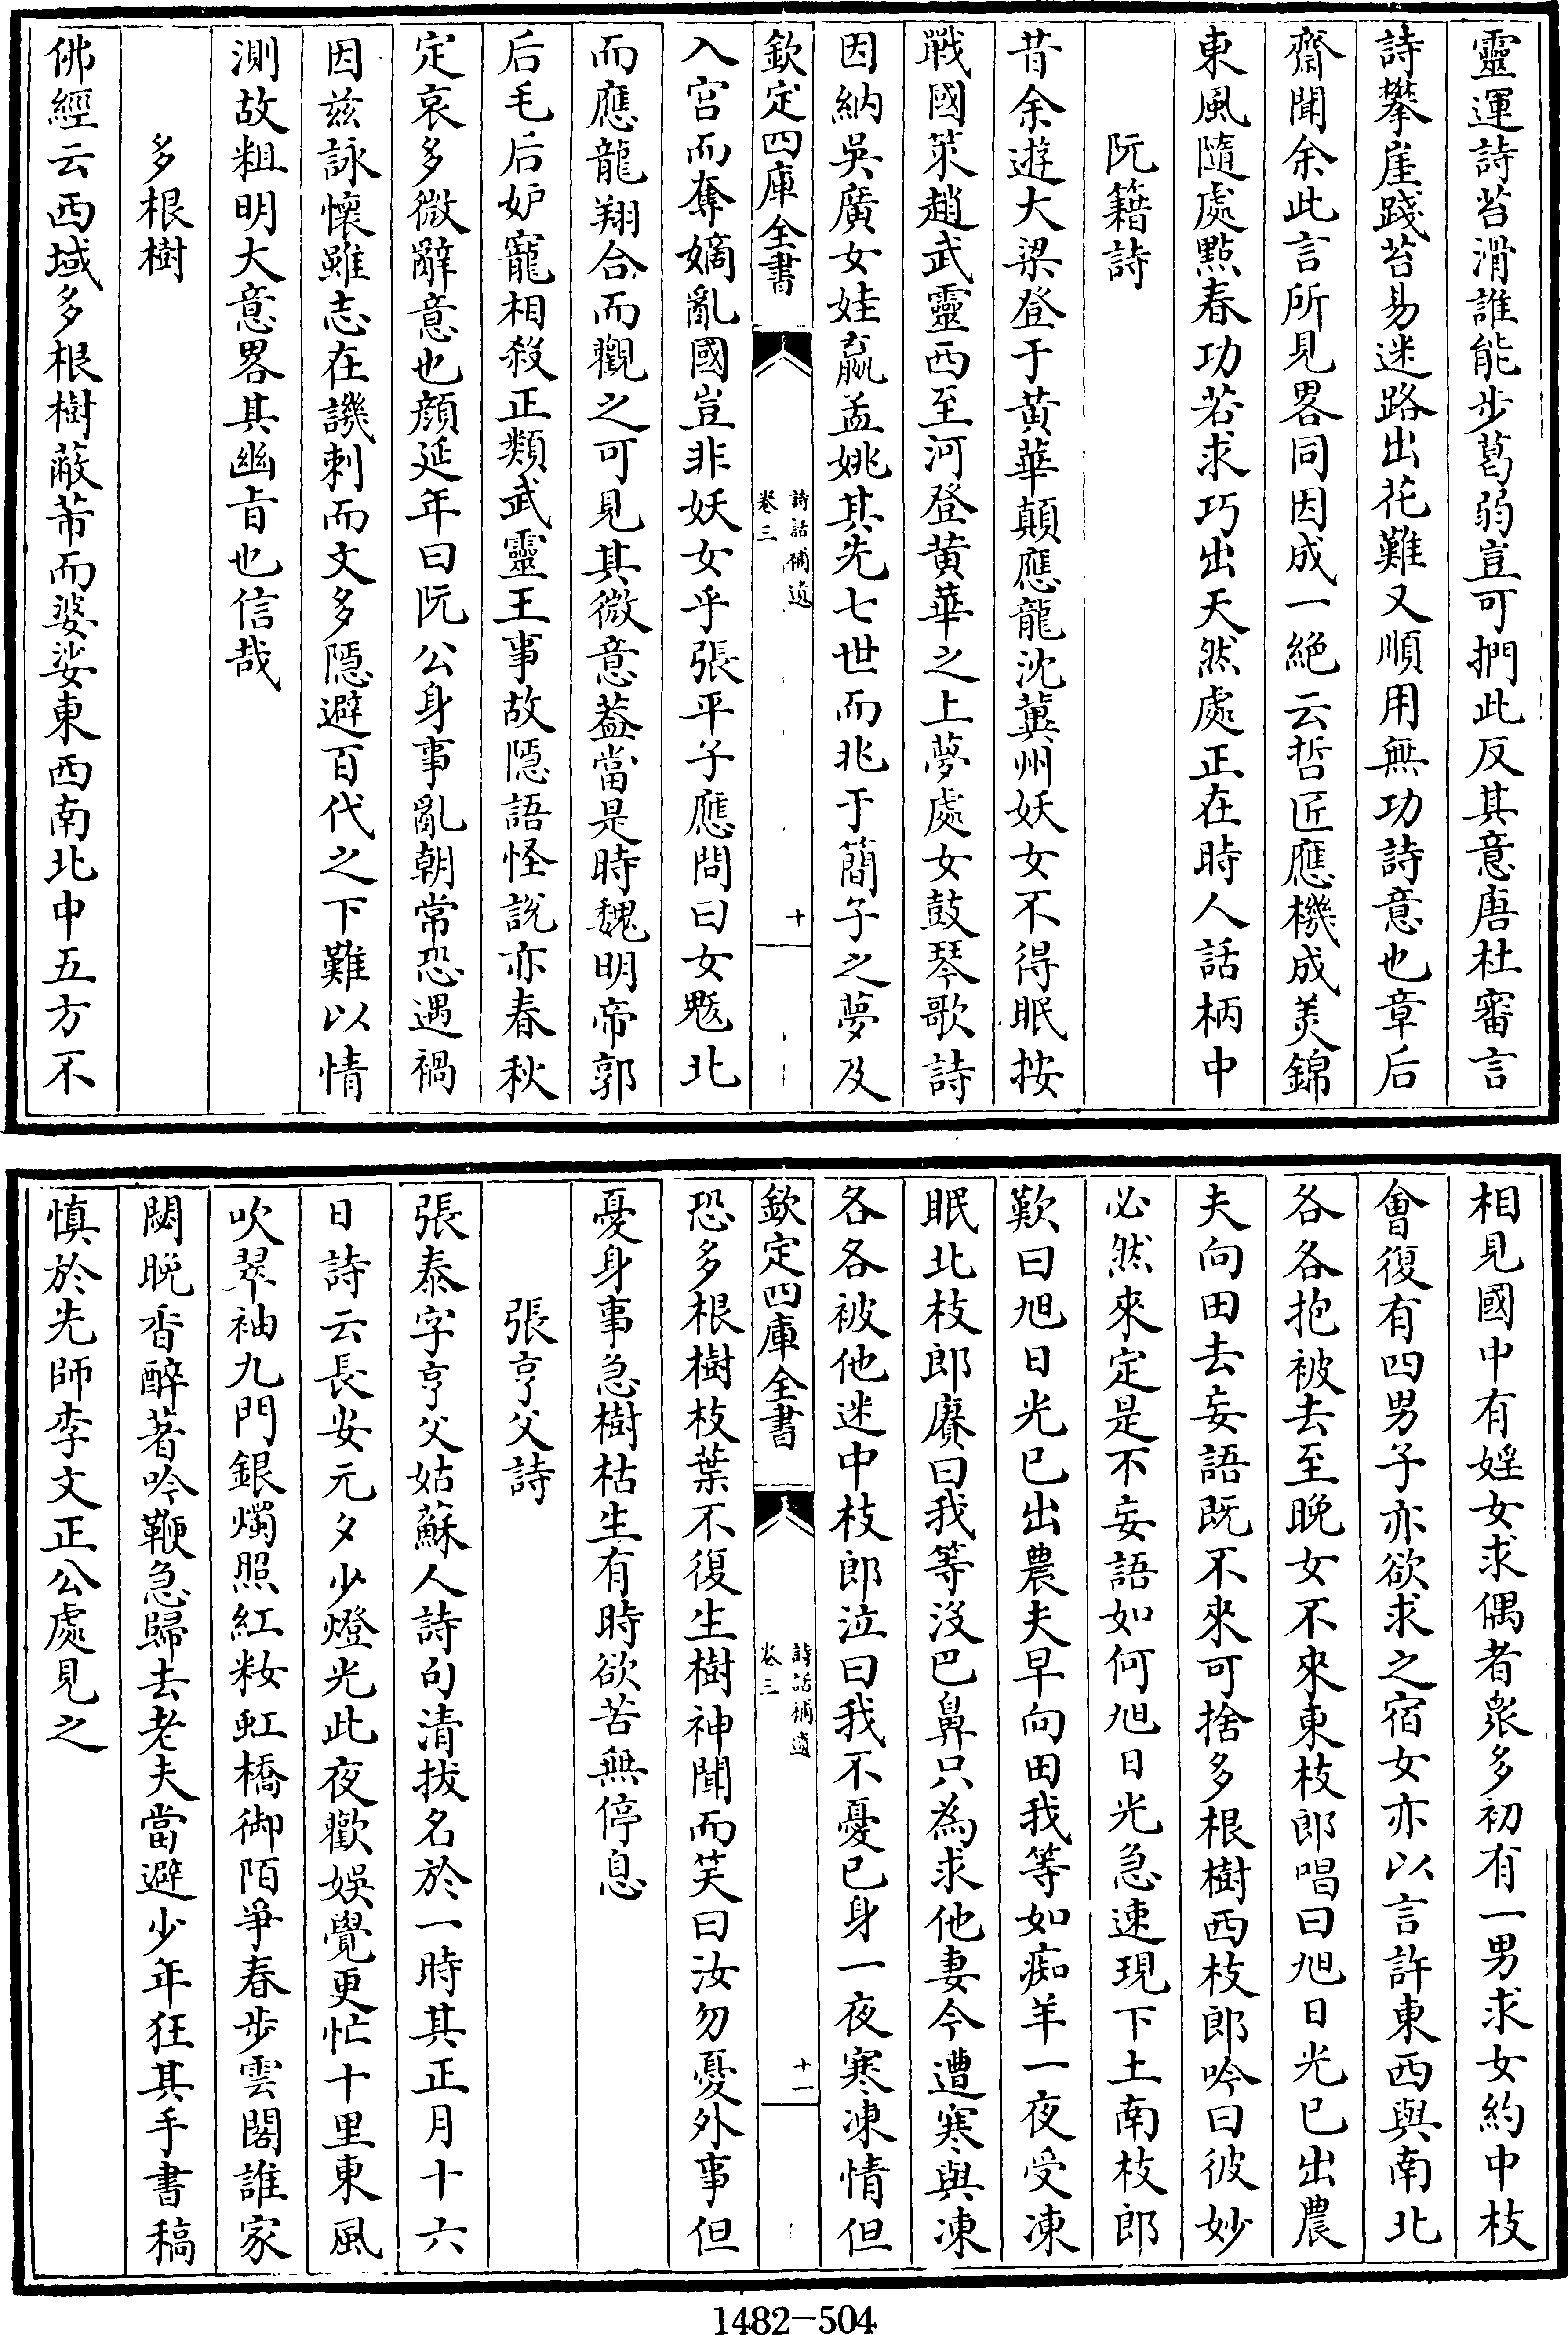 靈運詩苔滑誰能步葛弱豈可捫此反其意唐杜審言
詩攀崖踐苔易迷路出花難又順用無功詩意也章后
齋聞余此言所見畧同因成一絕云哲匠應機成美錦
東風隨處點春功若求巧出天然處正在時人話柄中
阮籍詩
昔余遊大梁登于黄華顛應龍沈冀州妖女不得眠按
戰國策趙武靈西至河登黄華之上夢處女鼓琴歌詩
因納吳廣女娃嬴孟姚其先七世而兆于簡子之夢及
欽定四庫全書
詩話補遺
卷三
十
入宫而奪嫡亂國豈非妖女乎張平子應問曰女魃北
而應龍翔合而觀之可見其微意葢當是時魏明帝郭
后毛后妒寵相殺正類武靈王事故隠語怪說亦春秋
定哀多微辭意也顔延年曰阮公身事亂朝常恐遇禍
因兹詠懷雖志在譏刺而文多隠避百代之下難以情
測故粗明大意畧其幽旨也信哉
多根樹
佛經云西域多根樹蔽芾而婆娑東西南北中五方不
相見國中有婬女求偶者衆多初有一男求女約中枝
會復有四男子亦欲求之宿女亦以言許東西與南北
各各抱被去至晚女不來東枝郎唱曰旭日光已出農
夫向田去妄語既不來可捨多根樹西枝郎吟曰彼妙
必然來定是不妄語如何旭日光急速現下土南枝郎
歎曰旭日光已出農夫早向田我等如痴羊一夜受凍
眠北枝郎賡曰我等没巴鼻只為求他妻今遭寒與凍
各各被他迷中枝郎泣曰我不憂已身一夜寒凍情但
欽定四庫全書
詩話補遺
卷三
十一
恐多根樹枝葉不復生樹神聞而笑曰汝勿憂外事但
憂身事急樹枯生有時欲苦無停息
張亨父詩
張泰字亨父姑蘇人詩句清拔名於一時其正月十六
日詩云長安元夕少燈光此夜歡娛覺更忙十里東風
吹翠袖九門銀燭照紅粧虹橋御陌爭春步雲閣誰家
閟晚香醉著吟鞭急歸去老夫當避少年狂其手書稿
慎於先師李文正公處見之
1482-504